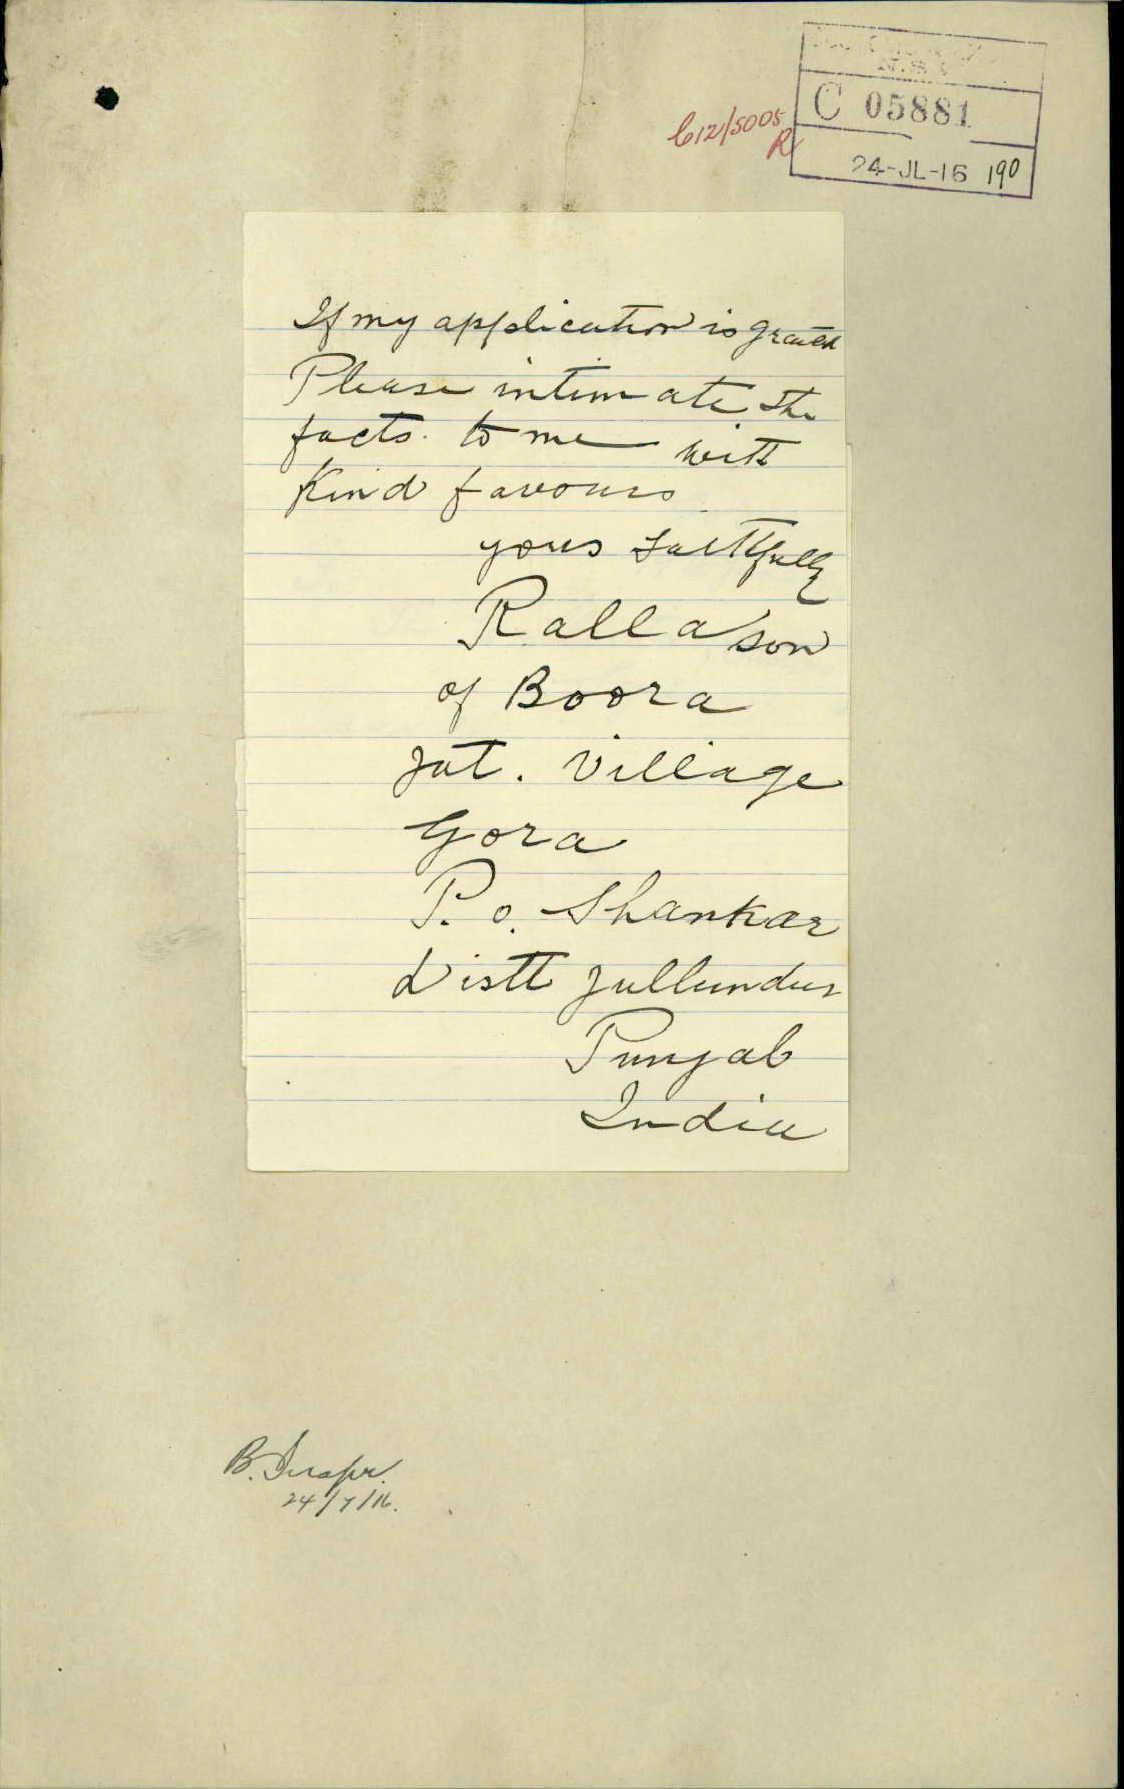 C 05881
C12/5005
R
24-JL-16 190
If my application is granted
Please intimate the
facts. to me with
Kind favours
yours faithfully
Ralla son
of Boora
Jat. Village
Gora
P. o. Shankar
Distt Jullundur
Punjab
India
24/7/16.